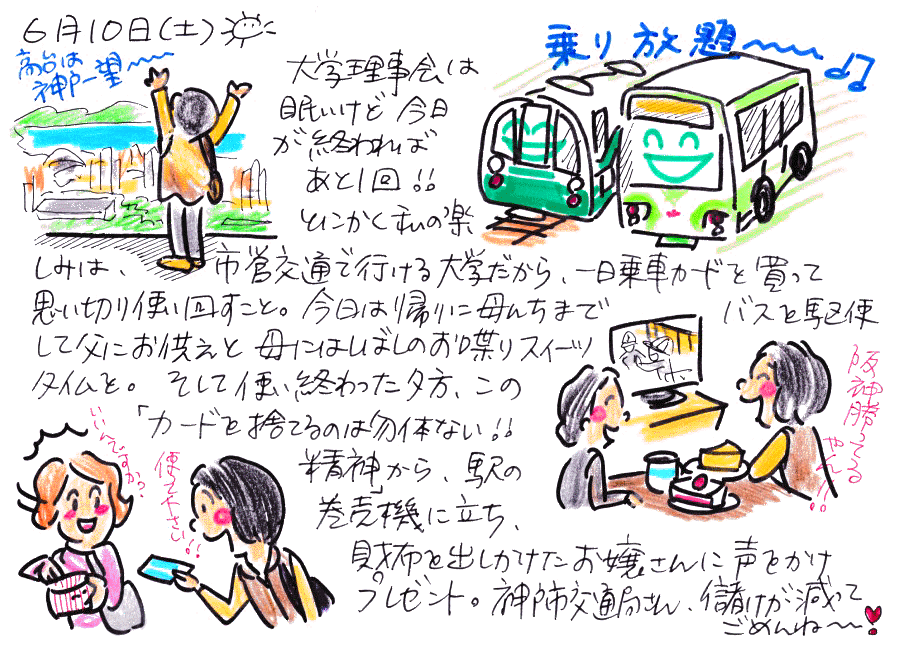 6月10日(土)
高台は
神戸一望〜〜
乗り放題〜〜〜♪
大学理事会は
眠いけど 今日
が終われば
あと1回!!
とにかく私の楽
しみは、市営交通で行ける大学だから、一日乗車カードを買って
思い切り使い回すこと。今日は帰りに母んちまで バスを駆使
して父にお供えと 母にはしばしのお喋りスイーツ
タイムを。そして使い終わった夕方、この
「カードを捨てるのは勿体ない!!
精神」から、駅の
券売機に立ち、
財布を出しかけたお嬢さんに声をかけ
プレゼント。神市交通局さん、儲けが減って
ごめんね〜〜!
阪神勝ってる
やん!!
いいんですか?
使って下さい!!